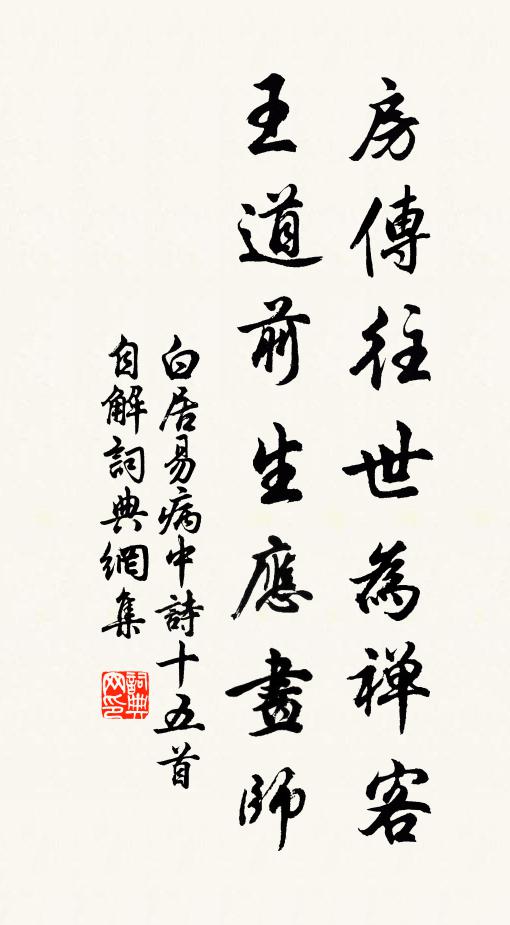 房傳往世為禪客
王道前生應畫師
白居易病中詩十五首
自解詞典網集
詞典网印